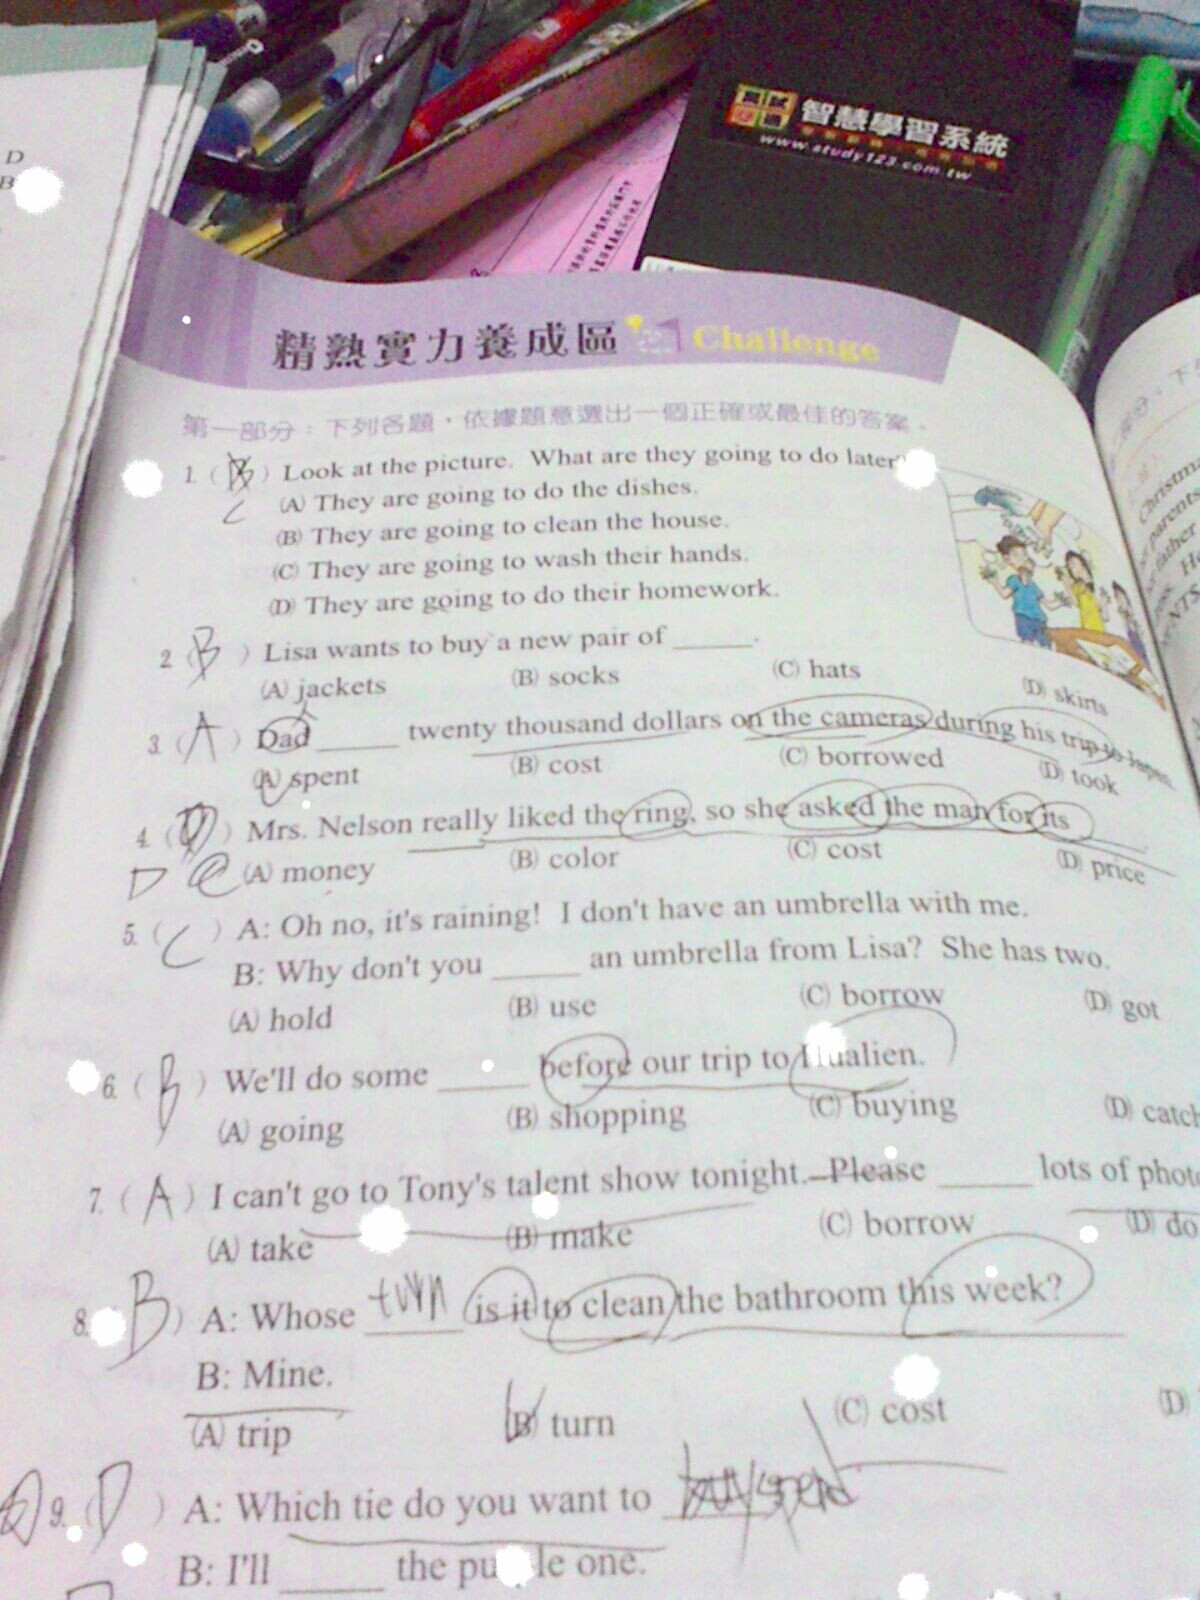 D
B
智慧學習系統
www.study123.com.tw
精熟實力養成區 Challenge
第一部分：下列各題，依據題意選出一個正確或最佳的答案。
1. ( B ) Look at the picture. What are they going to do later
C
(A) They are going to do the dishes.
(B) They are going to clean the house.
(C) They are going to wash their hands.
(D) They are going to do their homework.
2. ( B ) Lisa wants to buy a new pair of ______.
(A) jackets (B) socks (C) hats (D) skirts
3. ( A ) Dad ______ twenty thousand dollars on the cameras during his trip to Japan.
(A) spent (B) cost (C) borrowed (D) took
4. ( D ) Mrs. Nelson really liked the ring, so she asked the man for its ______.
D C (A) money (B) color (C) cost (D) price
5. ( C ) A: Oh no, it's raining! I don't have an umbrella with me.
B: Why don't you ______ an umbrella from Lisa? She has two.
(A) hold (B) use (C) borrow (D) got
6. ( B ) We'll do some ______ before our trip to Hualien.
(A) going (B) shopping (C) buying (D) catch
7. ( A ) I can't go to Tony's talent show tonight. Please ______ lots of phot
(A) take (B) make (C) borrow (D) do
8. ( B ) A: Whose turn is it to clean the bathroom this week?
B: Mine.
(A) trip (B) turn (C) cost (D)
9. ( D ) A: Which tie do you want to
B: I'll ______ the purple one.
Christma
parents
father